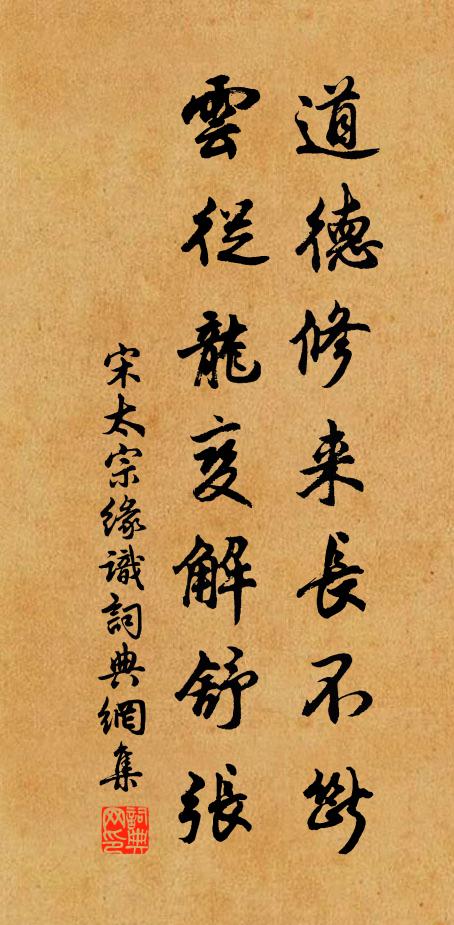 道德修来長不断
雲從龍变解舒張
宋太宗缘識詞典網集
詞典网印